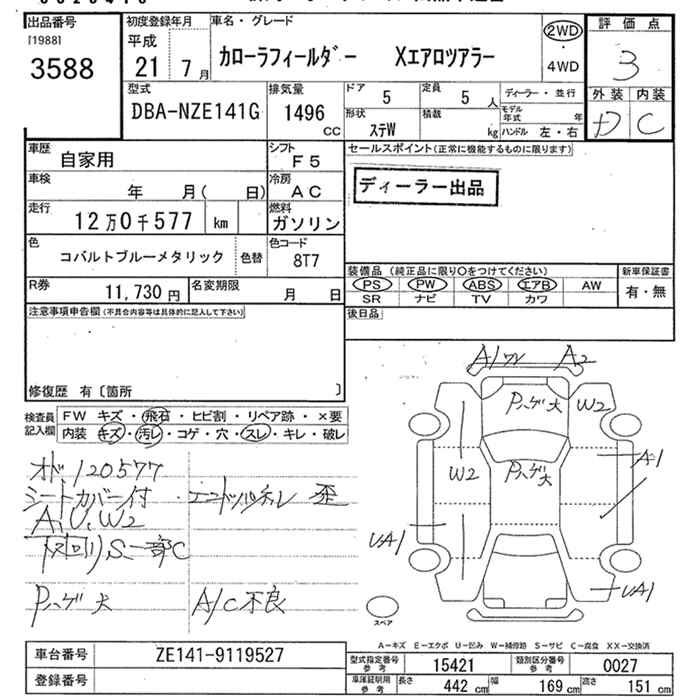 出品番号
[1988]
3588
初度登録年月
平成
21 7月
車名・グレード
カローラフィールダー Xエアロツアラー
2WD
・
4WD
評価点
3
外装 内装
D C
型式
DBA-NZE141G
排気量
1496
cc
ドア
5
定員
5人
ディーラー・並行
形状
ステW
積載
kg
モデル年式 年
ハンドル 左・右
車歴
自家用
シフト
F5
セールスポイント(正常に機能するものに限ります)
ディーラー出品
車検
年 月( 日)
冷房
AC
走行
12万0千577 km
燃料
ガソリン
色
コバルトブルーメタリック
色替
色コード
8T7
R券
11,730円
名変期限
月 日
装備品(純正品に限り〇をつけてください)
新車保証書
PS PW ABS エアB AW
有・無
SR ナビ TV カワ
後日品
注意事項申告欄(不具合内容等は具体的に記入して下さい)
修復歴 有〔箇所 〕
検査員
記入欄
FW キズ・飛石・ヒビ割・リペア跡・×要
内装 キズ・汚レ・コゲ・穴・スレ・キレ・破レ
オド120577
シートカバー付
A、U、W2
下回りS、一部C
Pハゲ大
A/C不良
A1ワレ A2
Pハゲ大 W2
A1
W2
Pハゲ大
UA1
UA1
スペア
A-キズ E-エクボ U-凹み W-補修跡 S-サビ C-腐食 XX-交換済
車台番号
ZE141-9119527
型式指定番号
参考
15421
類別区分番号
参考
0027
登録番号
車庫証明用
参考
長さ
442 cm
幅
169 cm
高さ
151 cm